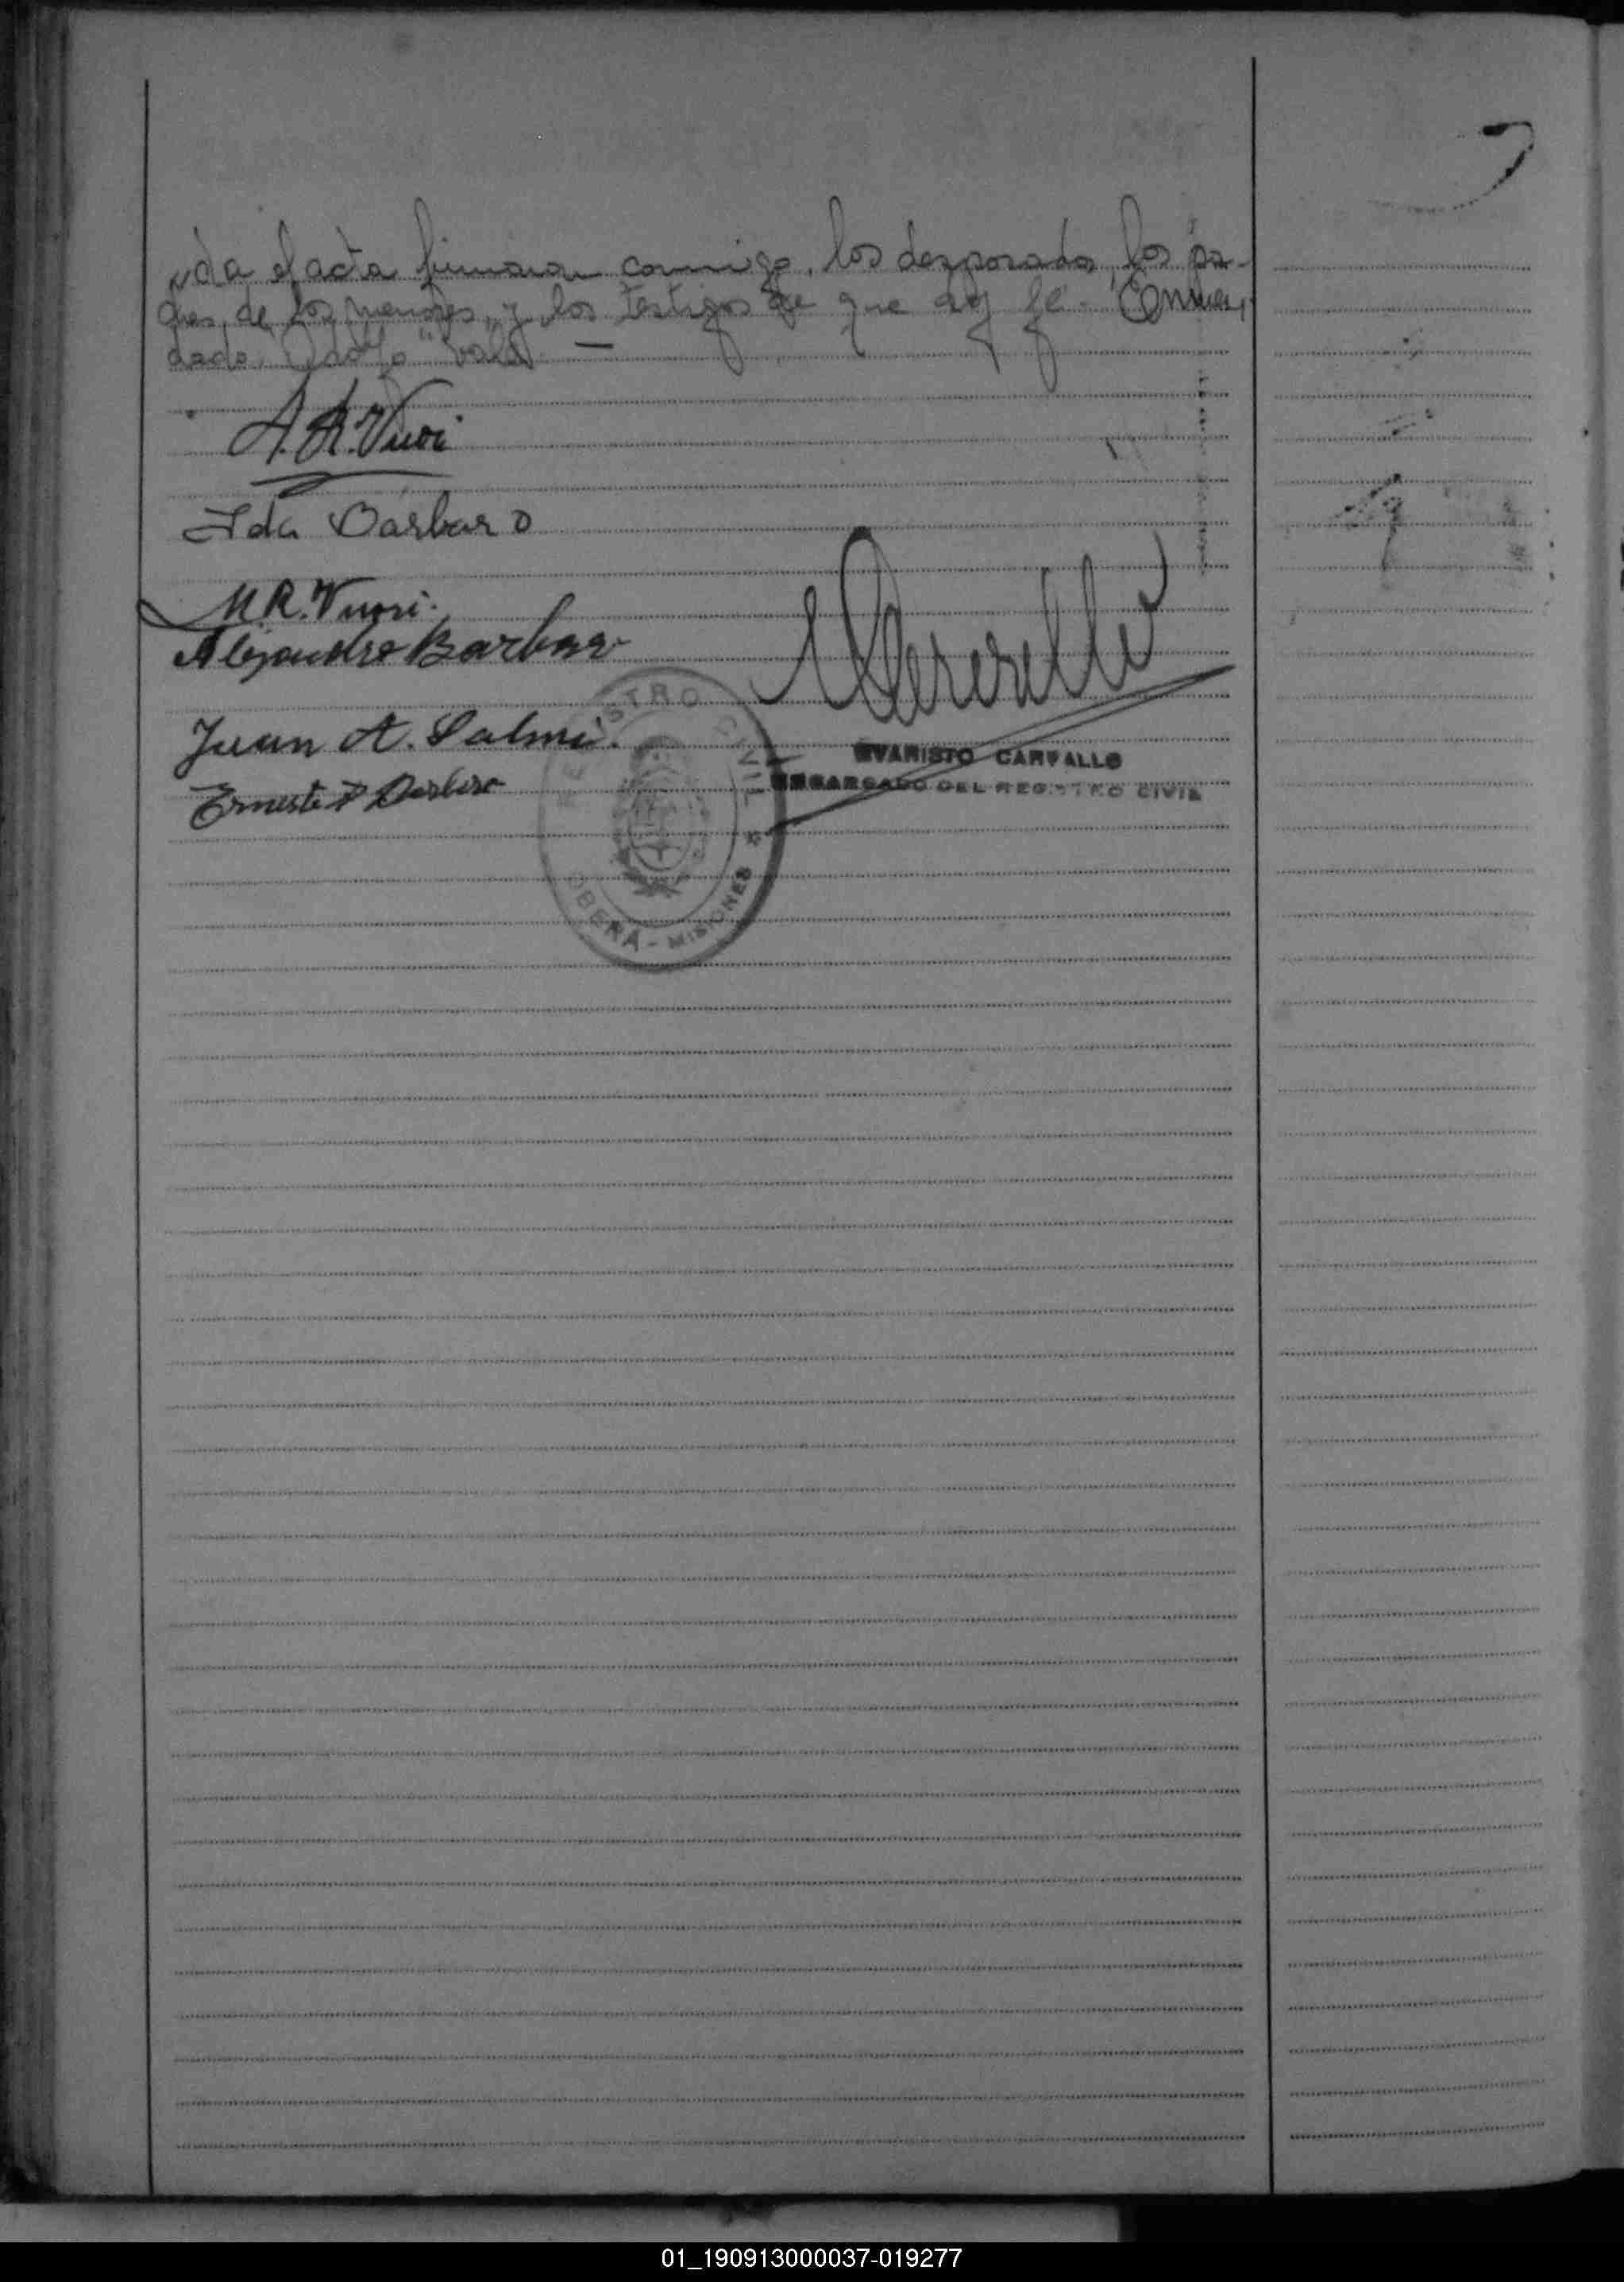 da el acta firmaron conmigo, los desposados, los pa-
dres, de los menores, y los testigos de que doy fé. Enmen,
dado, vale. —
A. R. Vuori
Ida Bárbaro
M. R. Vuori.
Alejandro Barbaro
Juan A. Salmi.
Ernesto P Barbaro
REGISTRO CIVIL
OBERA - MISIONES
EVARISTO CARVALLO
ENCARGADO DEL REGISTRO CIVIL
01_190913000037-019277